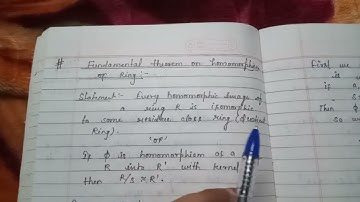 # Fundamental theorem on homomorphism
of Ring:-
Statement:- Every homomorphic image of
a ring R is isomorphic
to some residue class ring (Quotient
Ring)
'OR'
If ϕ is homomorphism of a
R into R' with kernel
then R/S ≅ R'.
First we
is
if a
Then ϕ
so